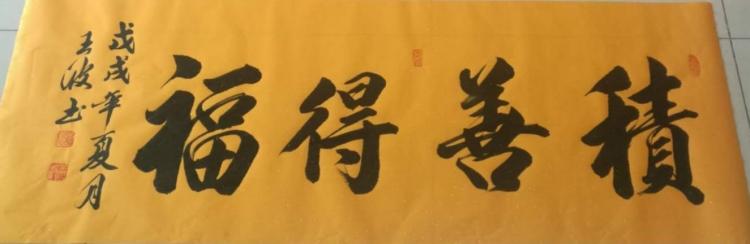 積善得福
戊戌年夏月
王波书